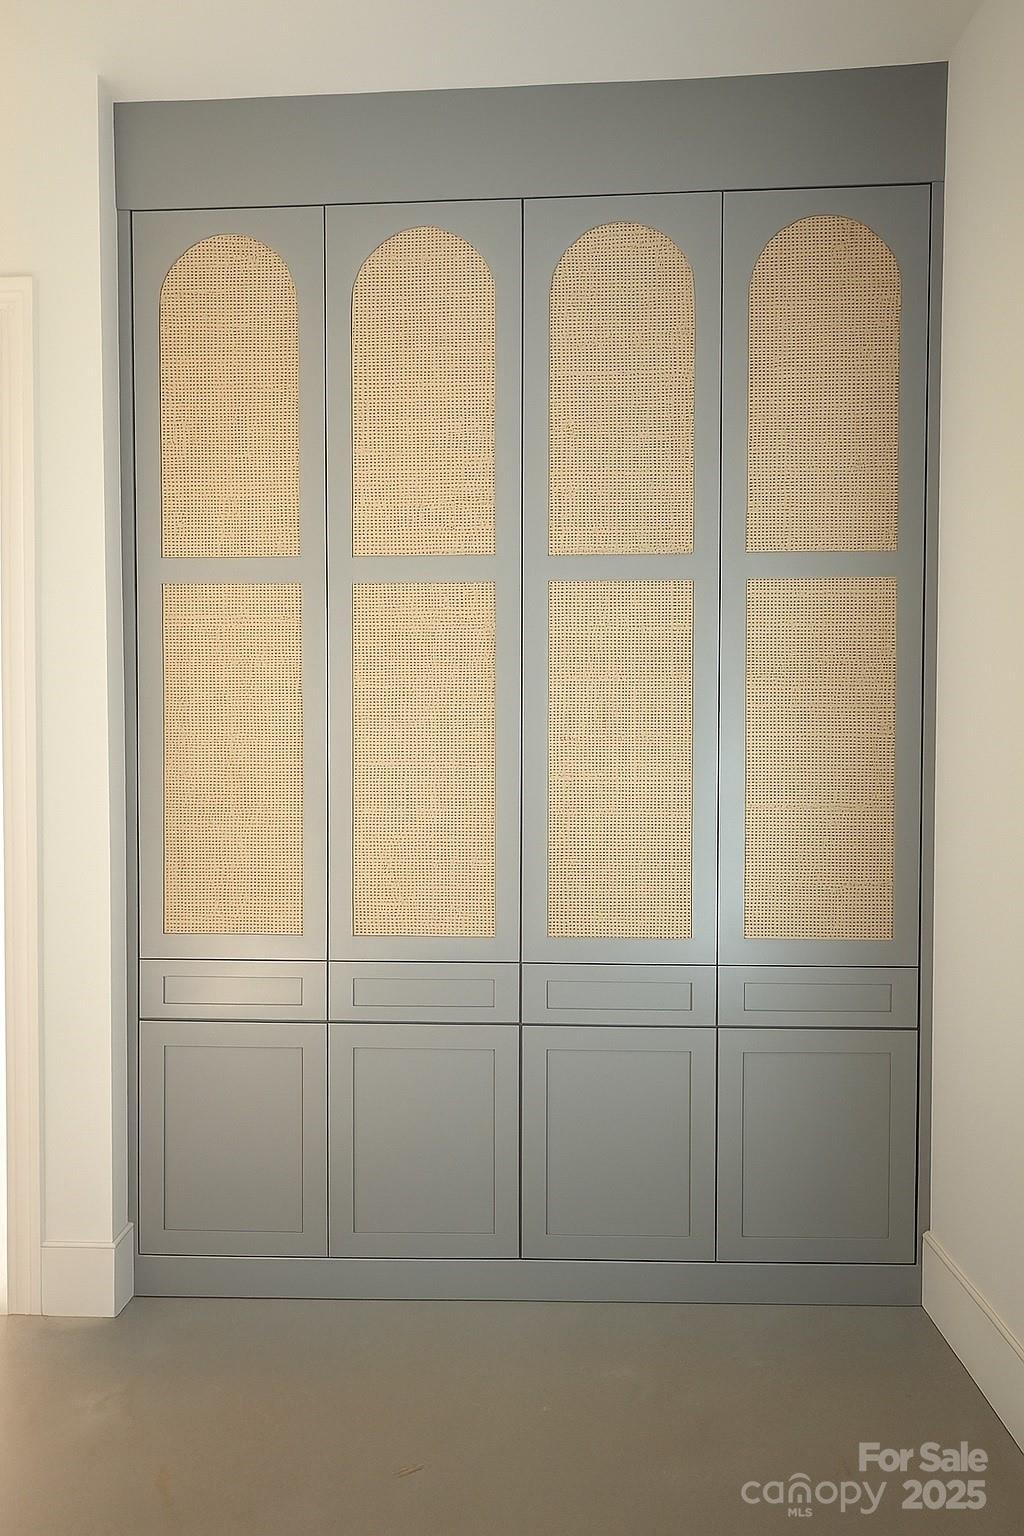 For Sale
canopy 2025
MLS